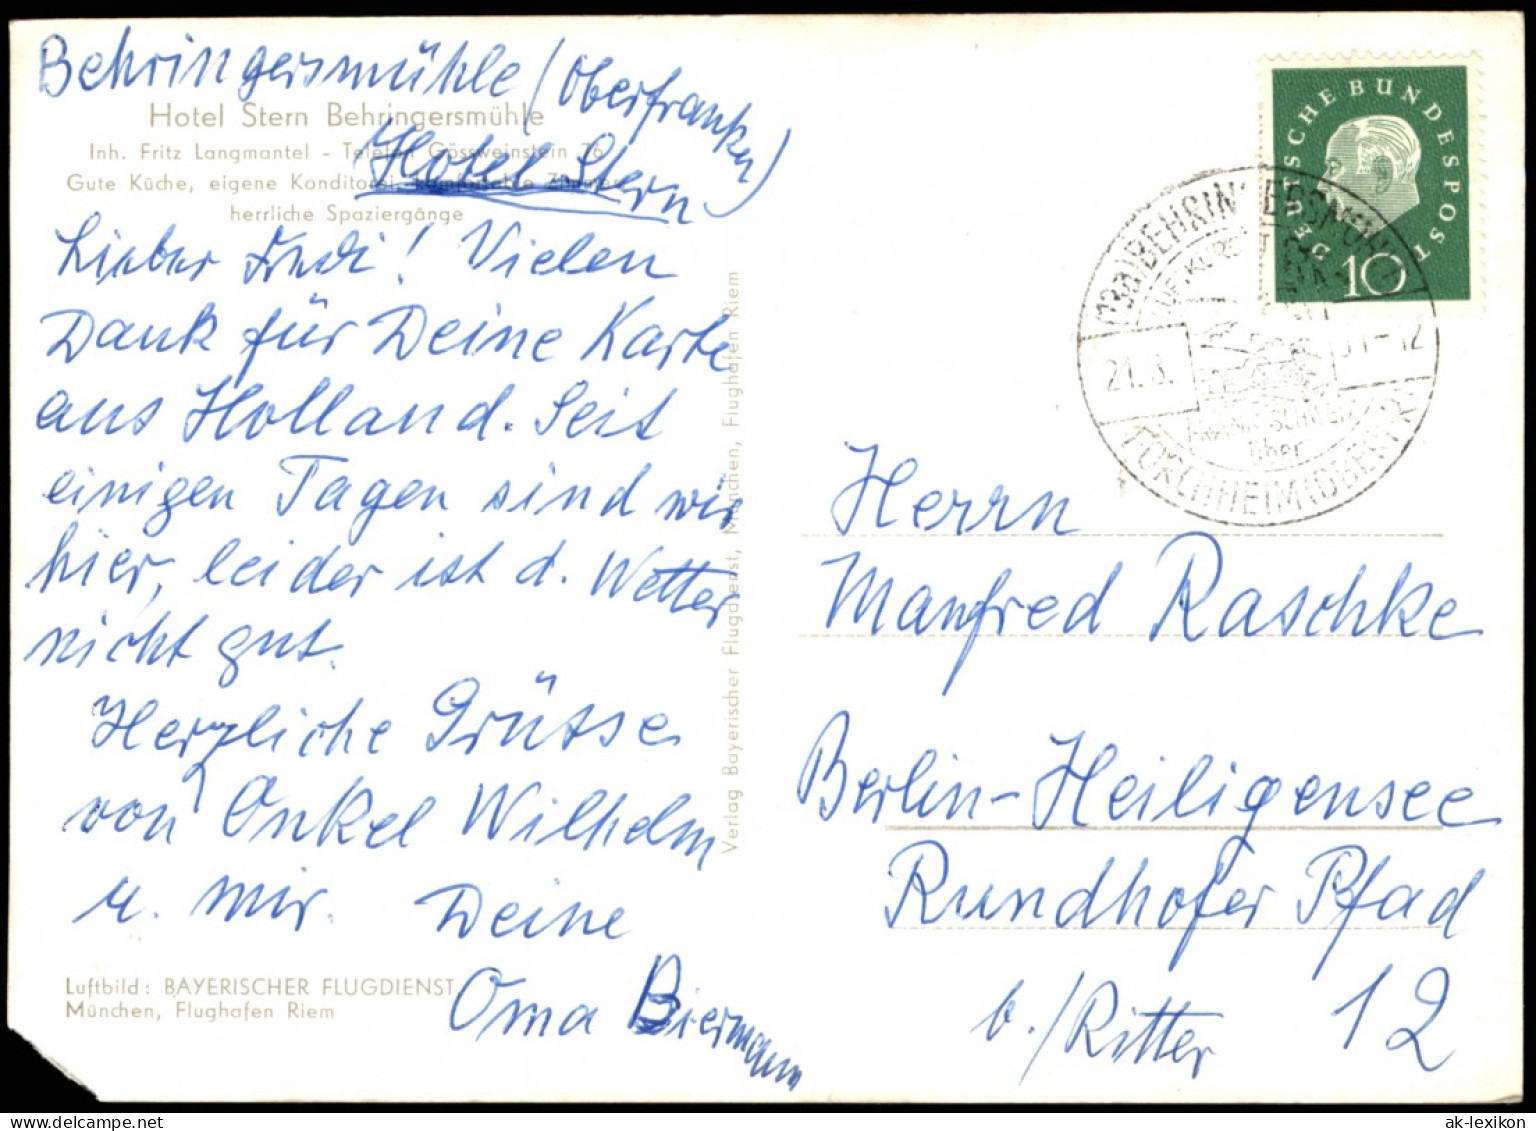 Behringersmühle (Oberfranken)
Hotel Stern
Hotel Stern Behringersmühle
Inh. Fritz Langmantel - Telefon Gössweinstein 76
Gute Küche, eigene Konditorei, komfortable Zimmer
herrliche Spaziergänge
Lieber Fredi! Vielen
Dank für Deine Karte
aus Holland. Seit
einigen Tagen sind wir
hier, leider ist d. Wetter
nicht gut.
Herzliche Grüsse
von Onkel Wilhelm
u. mir. Deine
Oma Biermann
Luftbild: BAYERISCHER FLUGDIENST
München, Flughafen Riem
Verlag Bayerischer Flugdienst, München, Flughafen Riem
DEUTSCHE BUNDESPOST
10
(13a) BEHRINGERSMÜHLE
LUFTKURORT
21.8. -12
FRÄNK. SCHWEIZ
über
FORCHHEIM (OBERFR)
Herrn
Manfred Raschke
Berlin-Heiligensee
Rundhofer Pfad
b./Ritter 12
ak-lexikon